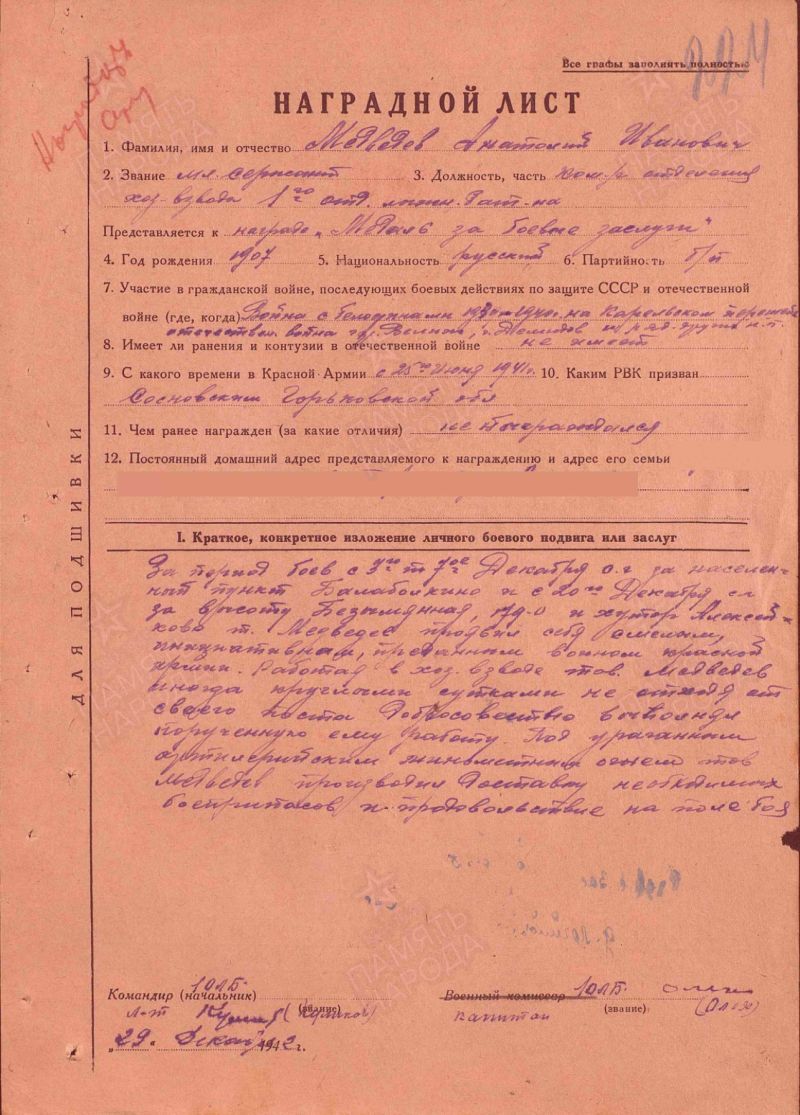 Все графы заполнять полностью
НАГРАДНОЙ ЛИСТ
1. Фамилия, имя и отчество Медведев Анатолий Иванович
2. Звание мл. сержант 3. Должность, часть ком-р отделения
хоз. взвода 1го отд.
Представляется к награде „Медаль за боевые заслуги"
4. Год рождения 1907 5. Национальность русский 6. Партийность б/п
7. Участие в гражданской войне, последующих боевых действиях по защите СССР и отечественной
войне (где, когда) Война с белофиннами на Карельском
отечествен. война
8. Имеет ли ранения и контузии в отечественной войне не имеет
9. С какого времени в Красной Армии с 25го июня 1941г. 10. Каким РВК призван
Сосновским Горьковской обл
11. Чем ранее награжден (за какие отличия) не награждался
12. Постоянный домашний адрес представляемого к награждению и адрес его семьи
I. Краткое, конкретное изложение личного боевого подвига или заслуг
За период боев с 3го по 7ое Декабря с.г за населен-
ный пункт Балаболкино и с 20го Декабря с.г
за высоту Безымянная, и хутор Алексей-
ково т. Медведев проявил себя смелым,
инициативным, преданным воином красной
армии. Работая в хоз. взводе тов. Медведев
иногда круглыми сутками не отходя от
своего поста Добросовестно выполнял
порученную ему работу. Под ураганным
артилерийским минометным огнем тов
Медведев производил Доставку необходимых
боеприпасов и продовольствие на поле боя
ДЛЯ ПОДШИВКИ
Командир (начальник) 1ОЛБ
Военный комиссар 1ОЛБ
л-т (Куликов) (звание)
капитан (звание)
„29" Декабря 1942
ПАМЯТЬ НАРОДА